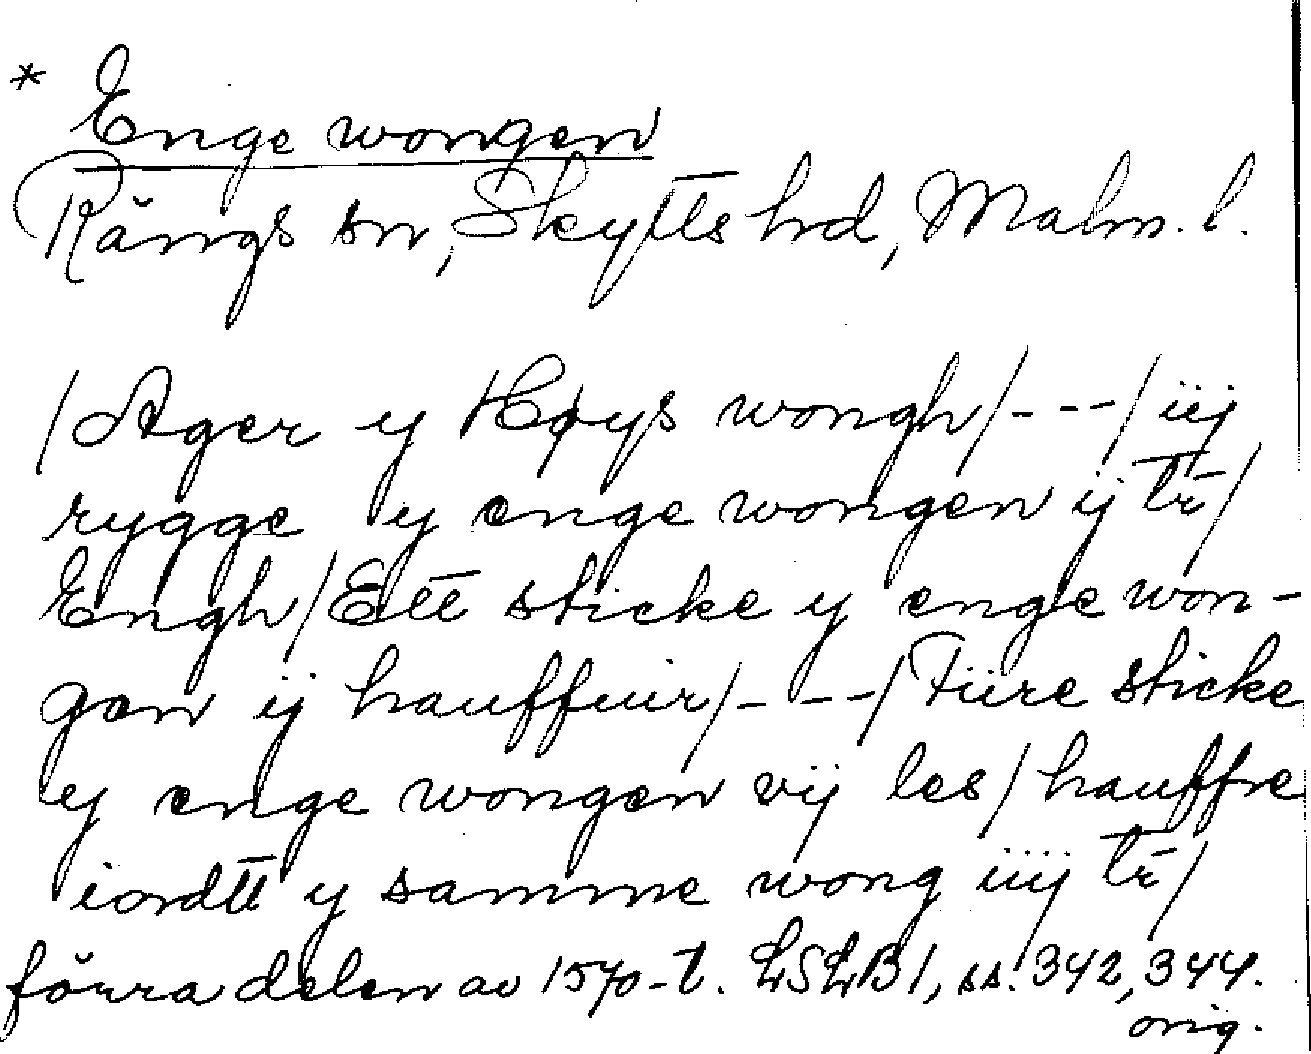 * Enge wongen
Rängs sn, Skytts hd, Malm. l.
/Ager y Høys wongh/---/iij
rygge y enge wongen ij tr̄/
Engh/Ett sticke y enge won-
gen ij hauffuir/---/Fiire sticke
y enge wongen vij les/hauffre
iordtt y samme wong iiij tr̄/
förra delen av 1570-t. LSLB1, ss. 342, 344.
orig.